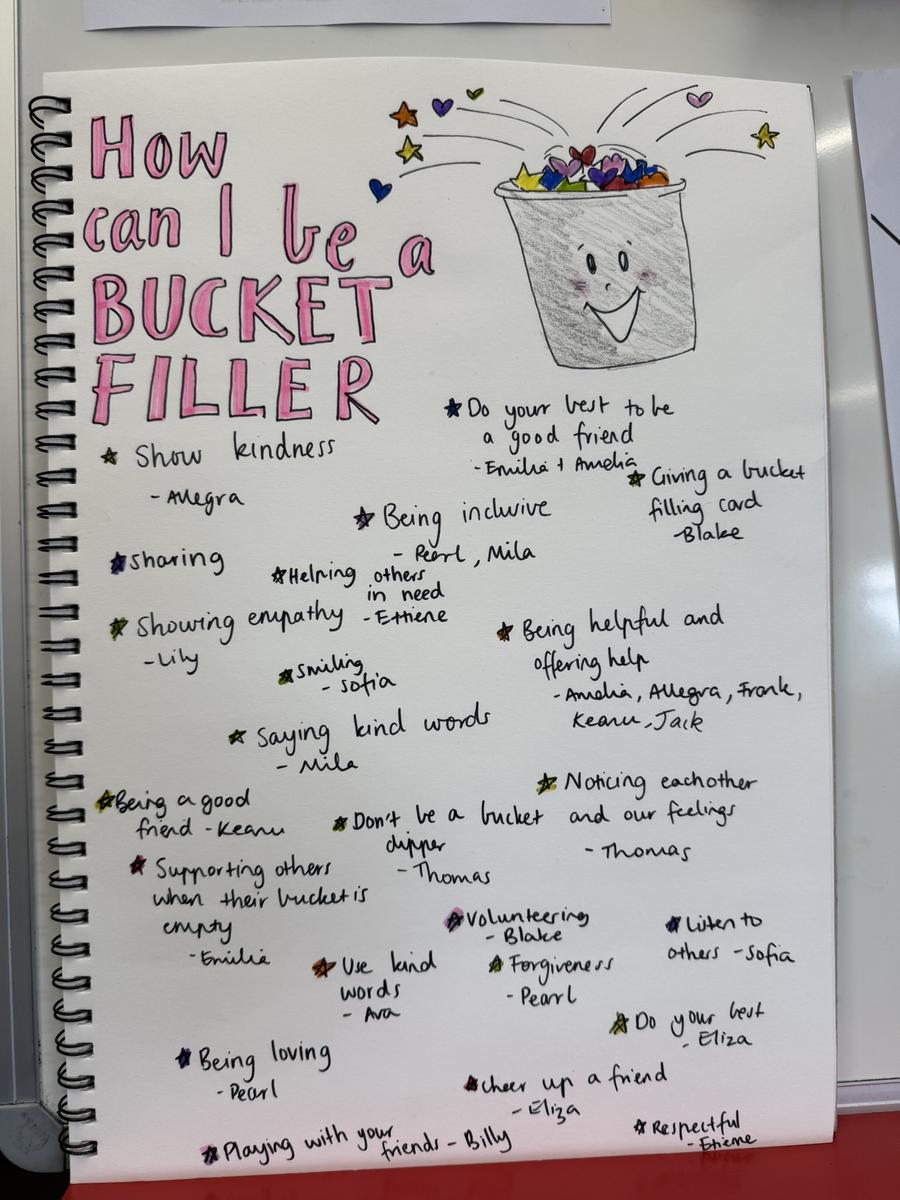 How
can I be a
BUCKET
FILLER
Do your best to be
a good friend
- Emilia + Amelia
Show kindness
- Allegra
Giving a bucket
filling card
- Blake
Being inclusive
- Pearl, Mila
Sharing
Helping others
in need
- Ettiene
Showing empathy
- Lily
Being helpful and
offering help
- Amelia, Allegra, Frank,
Keanu, Jack
Smiling
- Sofia
Saying kind words
- Mila
Noticing eachother
and our feelings
- Thomas
Being a good
friend - Keanu
Don't be a bucket
dipper
- Thomas
Supporting others
when their bucket is
empty
- Emilia
Volunteering
- Blake
Listen to
others - Sofia
Use kind
words
- Ava
Forgiveness
- Pearl
Do your best
- Eliza
Being loving
- Pearl
Cheer up a friend
- Eliza
Playing with your
friends - Billy
Respectful
- Etiene